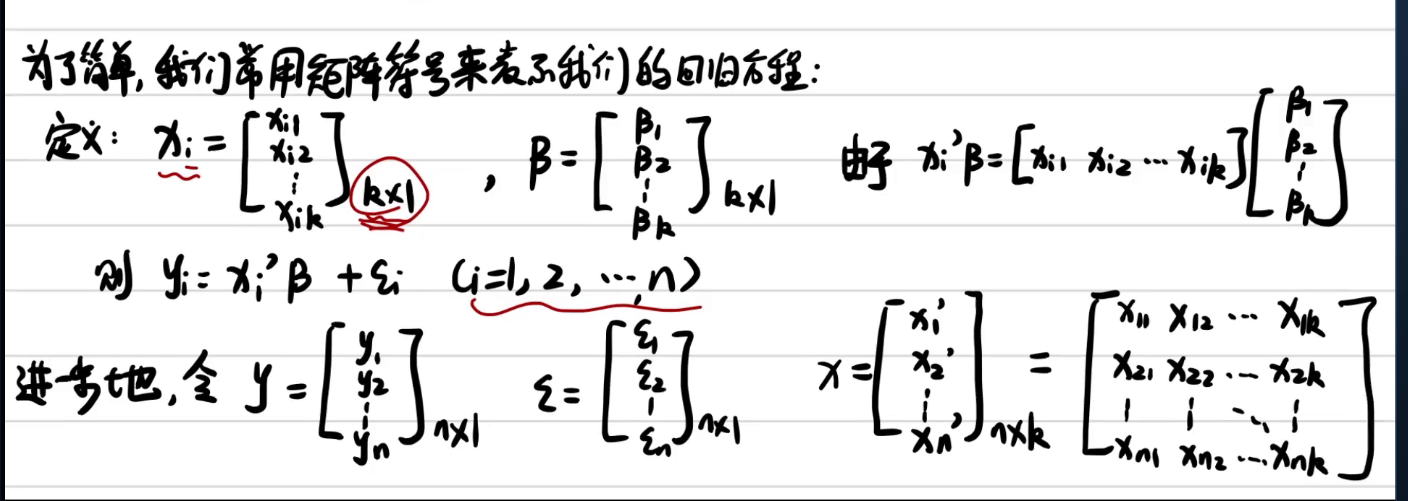 为了简单,我们常用矩阵符号来表示我们的回归方程:
定义: xᵢ = [xᵢ₁ xᵢ₂ ⋮ xᵢₖ]ₖₓ₁ , β = [β₁ β₂ ⋮ βₖ]ₖₓ₁ 由于 xᵢ'β = [xᵢ₁ xᵢ₂ ⋯ xᵢₖ][β₁ β₂ ⋮ βₖ]
则 yᵢ = xᵢ'β + εᵢ (i=1, 2, ⋯, n)
进一步地,令 y = [y₁ y₂ ⋮ yₙ]ₙₓ₁ ε = [ε₁ ε₂ ⋮ εₙ]ₙₓ₁ X = [x₁' x₂' ⋮ xₙ']ₙₓₖ = [x₁₁ x₁₂ ⋯ x₁ₖ x₂₁ x₂₂ ⋯ x₂ₖ ⋮ ⋮ ⋱ ⋮ xₙ₁ xₙ₂ ⋯ xₙₖ]